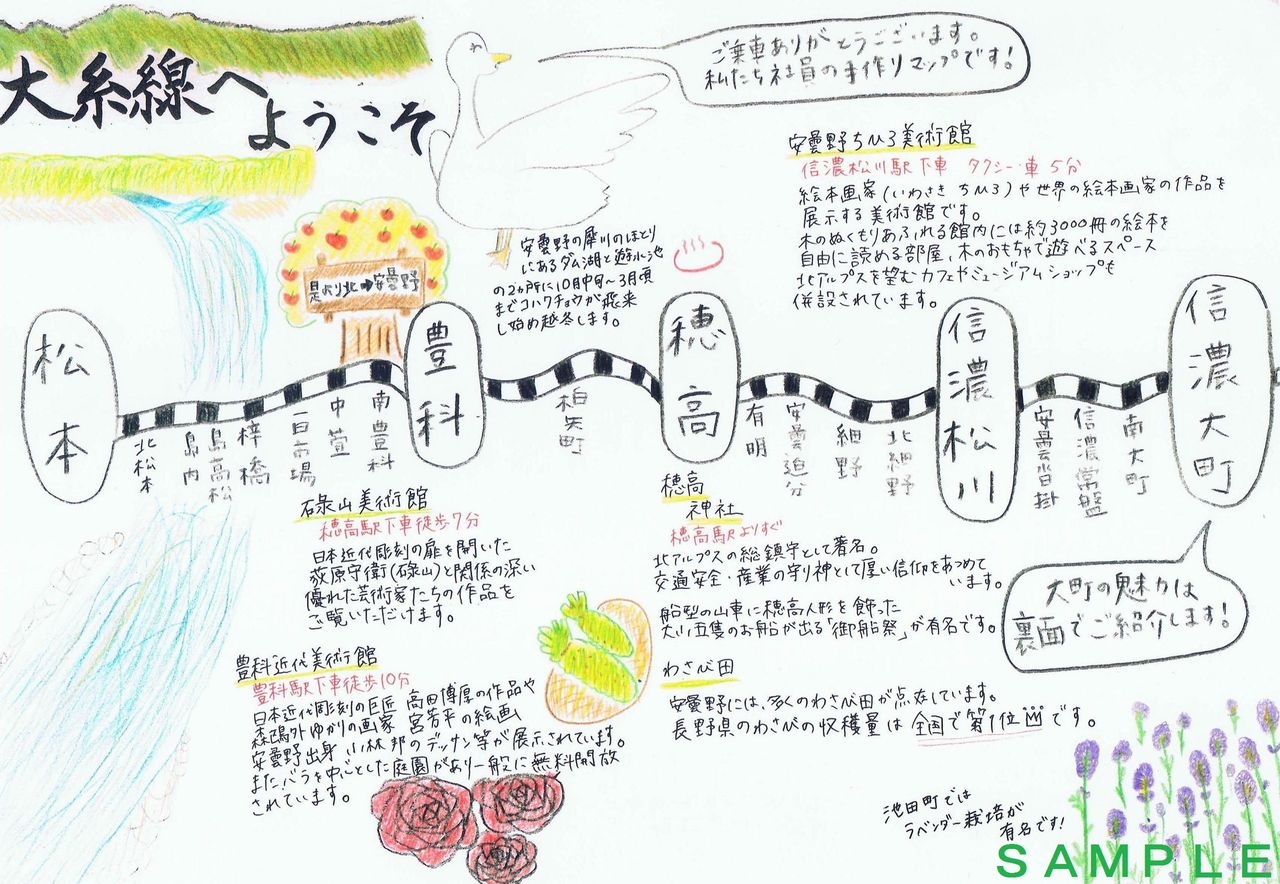 大糸線へ
ようこそ
ご乗車ありがとうございます。
私たち社員の手作りマップです!
安曇野ちひろ美術館
信濃松川駅下車 タクシー・車 5分
絵本画家(いわさき ちひろ)や世界の絵本画家の作品を
展示する美術館です。
木のぬくもりあふれる館内には約3000冊の絵本を
自由に読める部屋、木のおもちゃで遊べるスペース
北アルプスを望むカフェやミュージアムショップも
併設されています。
安曇野の犀川のほとり
にあるダム湖と遊水池
の2ヵ所に10月中旬〜3月頃
までコハクチョウが飛来
し始め越冬します。
是より北➡安曇野
松本
北松本
島内
島高松
梓橋
一日市場
中萱
南豊科
豊科
柏矢町
穂高
有明
安曇追分
細野
北細野
信濃松川
安曇沓掛
信濃常盤
南大町
信濃大町
碌山美術館
穂高駅下車徒歩7分
日本近代彫刻の扉を開いた
荻原守衛(碌山)と関係の深い
優れた芸術家たちの作品を
ご覧いただけます。
穂高
神社
穂高駅よりすぐ
北アルプスの総鎮守として著名。
交通安全・産業の守り神として厚い信仰をあつめて
います。
船型の山車に穂高人形を飾った
大小五隻のお船が出る「御船祭」が有名です。
大町の魅力は
裏面でご紹介します!
豊科近代美術館
豊科駅下車徒歩10分
日本近代彫刻の巨匠 高田博厚の作品や
森鴎外ゆかりの画家 宮芳平の絵画
安曇野出身 小林邦のデッサン等が展示されています。
また、バラを中心とした庭園があり一般に無料開放
されています。
わさび田
安曇野には、多くのわさび田が点在しています。
長野県のわさびの収穫量は全国で第1位です。
池田町では
ラベンダー栽培が
有名です!
SAMPLE